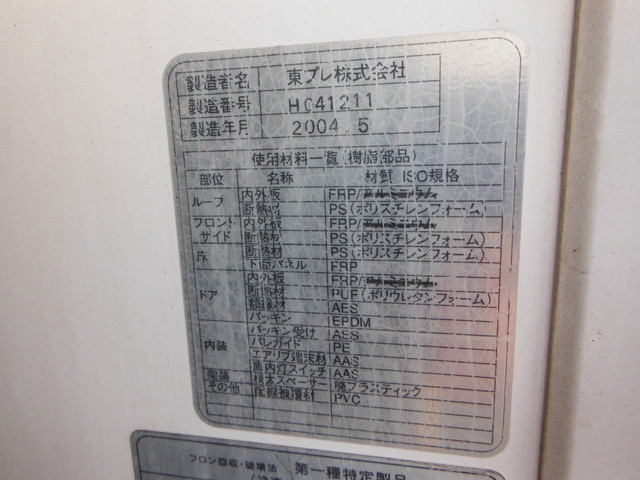 製造者名 東プレ株式会社
製造番号 HC41211
製造年月 2004 5
使用材料一覧(樹脂部品)
部位 名称 材質 ISO規格
ルーフ 内外板 FRP/アルミニウム
断熱材 PS(ポリスチレンフォーム)
フロント 内外板 FRP/アルミニウム
サイド 断熱材 PS(ポリスチレンフォーム)
床 断熱材 PS(ポリスチレンフォーム)
下面パネル FRP
ドア 内外板 FRP/アルミニウム
断熱材 PUF(ポリウレタンフォーム)
額縁材 AES
パッキン EPDM
内装 パッキン受け AES
バレガイド PE
エアリブ端末材 AAS
庫内灯スイッチ AAS
艤装 根太スペーサー 廃プラスティック
その他 配線被覆材 PVC
フロン回収・破壊法 第一種特定製品